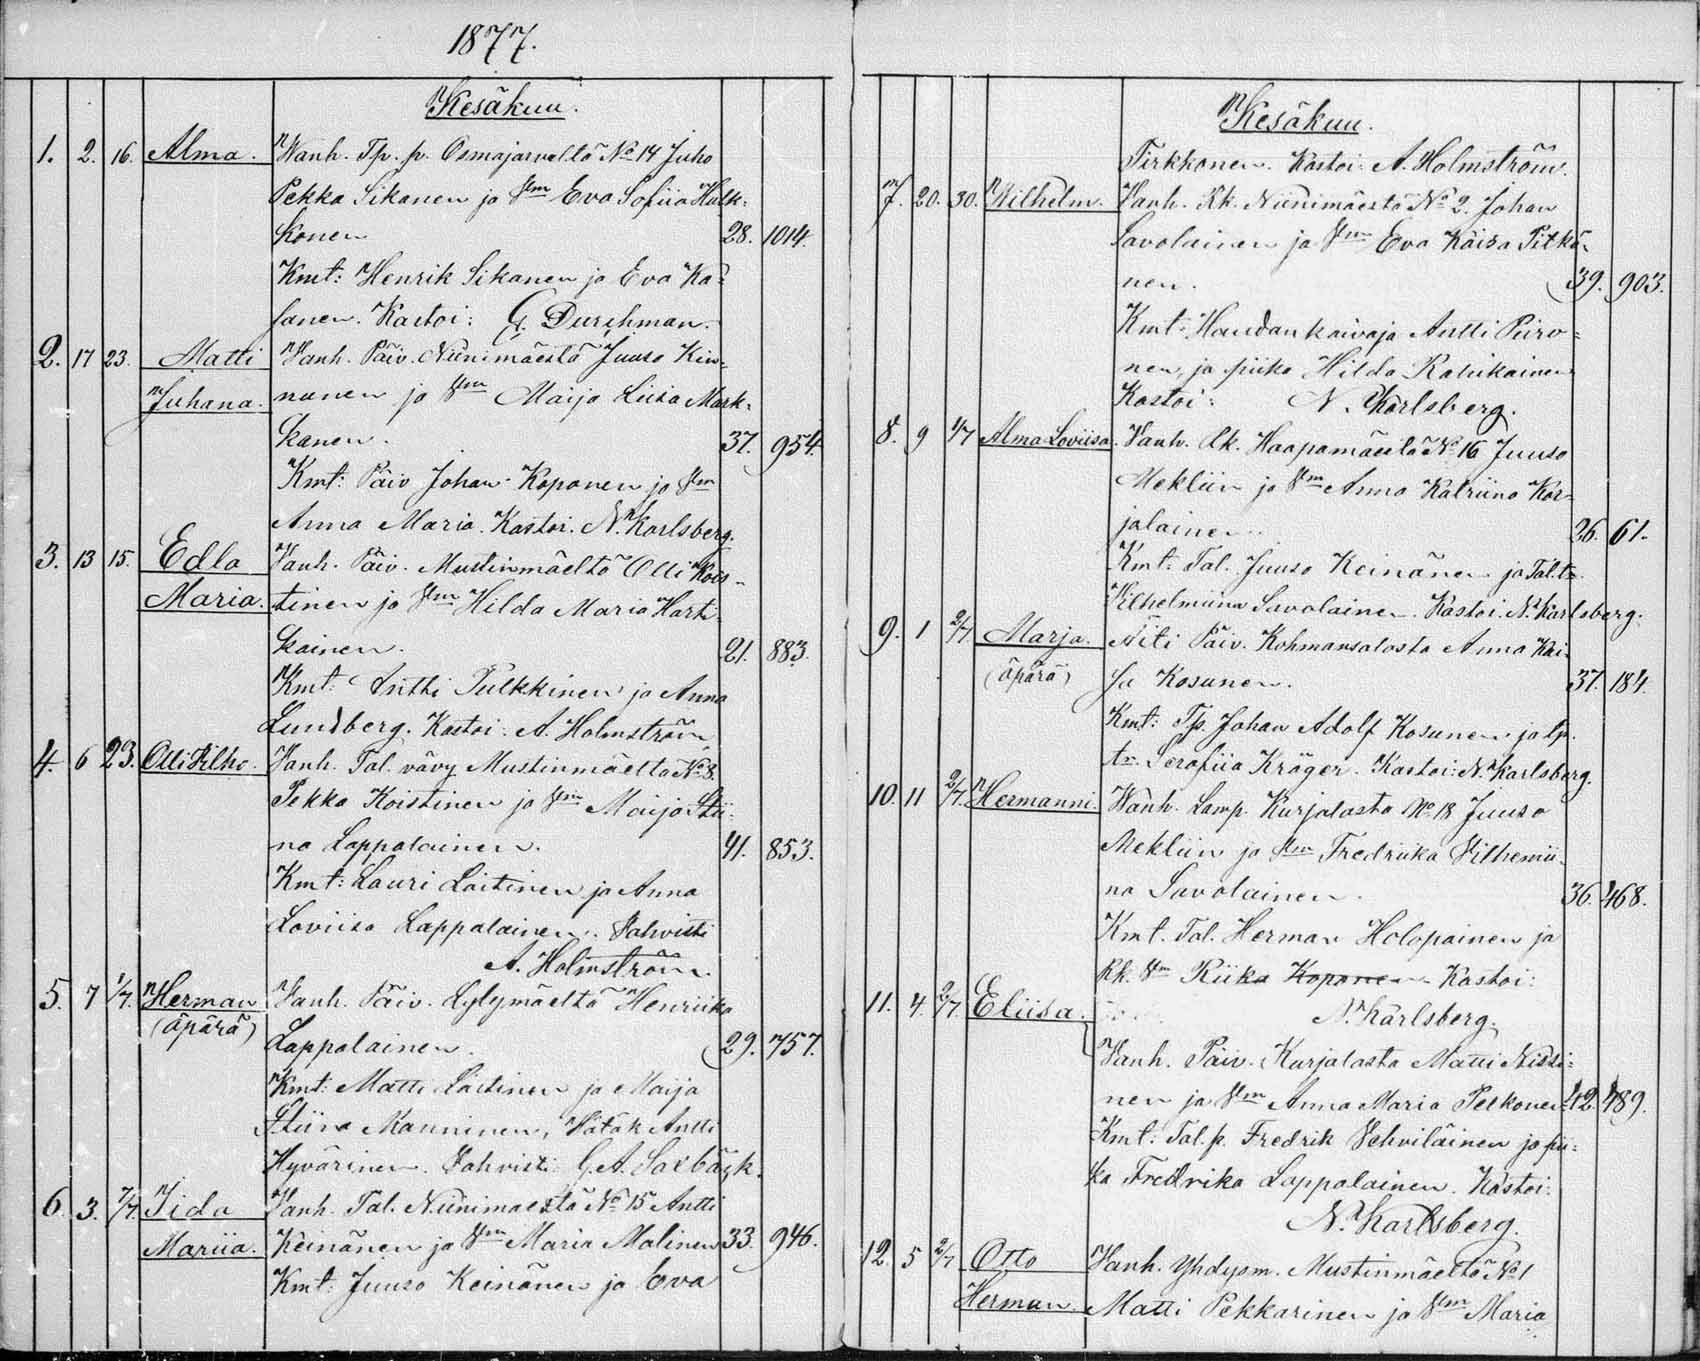 1877.
Kesäkuu.
1. 2. 16. Alma. Wanh. Tp. p. Osmajärveltä No 14 Juho
Pekka Sikanen ja Vm Eva Sofiia Hak-
konen 28. 1014.
Kmt: Henrik Sikanen ja Eva Ka-
sanen. Kastoi: G. Durchman.
2. 17 23. Matti Vanh. Päiv. Niinimäestä Juuso Kin-
Juhana. nunen ja Vm Maija Liisa Mark-
kanen. 37. 954.
Kmt: Päiv Johan Koponen ja Vm
Anna Maria. Kastoi. N. Karlsberg.
3. 13 15. Edla Vanh. Päiv. Mustinmäeltä Olli Kois-
Maria. tinen ja Vm Hilda Maria Harti-
kainen. 21. 883.
Kmt: Antti Pulkkinen ja Anna
Lundberg. Kastoi: A. Holmström
4. 6 23. Olli Vilho. Vanh. Tal. vävy Mustinmäeltä No 8.
Pekka Koistinen ja Vm Maija Stii-
na Lappalainen. 41. 853.
Kmt: Lauri Laitinen ja Anna
Loviisa Lappalainen. Vahvisti
A. Holmström.
5. 7 1/7. Herman Vanh. Päiv. Lylymäeltä Henriika
(äpärä) Lappalainen. 29. 757.
Kmt: Matti Laitinen ja Maija
Stiina Manninen, Hätäk Antti
Hyvärinen. Vahvisti G. A. Saxbäck.
6. 3. 7/7. Iida Vanh. Tal. Niinimaesta No 15 Antti
Mariia. Keinänen ja Vm Maria Malinen 33. 946.
Kmt: Juuso Keinänen ja Eva
Kesäkuu.
Tirkkonen. Kastoi: A. Holmström.
7. 20. 30. Wilhelm. Vanh. Rk. Niinimäestä No 2. Johan
Savolainen ja Vm Eva Kaisa Pitkä-
nen. 39. 903.
Kmt: Haudankaivaja Antti Piiro-
nen, ja piika Hilda Ratikainen
Kastoi: N. Karlsberg.
8. 9 1/7 Alma Loviisa. Vanh. Rk. Haapamäeltä No 16 Juuso
Mekliin ja Vm Anna Katriina Kar-
jalainen. 26. 61.
Kmt: Tal. Juuso Keinänen ja Tal. tr.
Vilhelmiina Savolainen. Kastoi. N. Karlsberg.
9. 1 2/7 Marja. Äiti Päiv. Kohmansalosta Anna Kai-
(äpärä) sa Kosunen. 37. 184.
Kmt: Tp. Johan Adolf Kosunen ja lp.
tr. Serafiia Kröger. Kastoi: N. Karlsberg.
10. 11 2/7. Hermanni. Wanh. Lamp. Kurjalasta No 18 Juuso
Mekliin ja Vm Fredriika Vilhemii-
na Savolainen. 36. 468.
Kmt. Tal. Herman Holopainen ja
Rk. Vm Riika Koponen Kastoi:
N. Karlsberg.
11. 4. 2/7. Eliisa. Vanh. Päiv. Kurjalasta Matti Nissi-
nen ja Vm Anna Maria Pelkonen 42. 489.
Kmt: Tal. p. Fredrik Vehviläinen ja pii-
ka Fredrika Lappalainen. Kastoi:
N. Karlsberg.
12. 5 2/7 Otto Vanh. Yhdysm. Mustinmäeltä No 1
Herman. Matti Pekkarinen ja Vm Maria